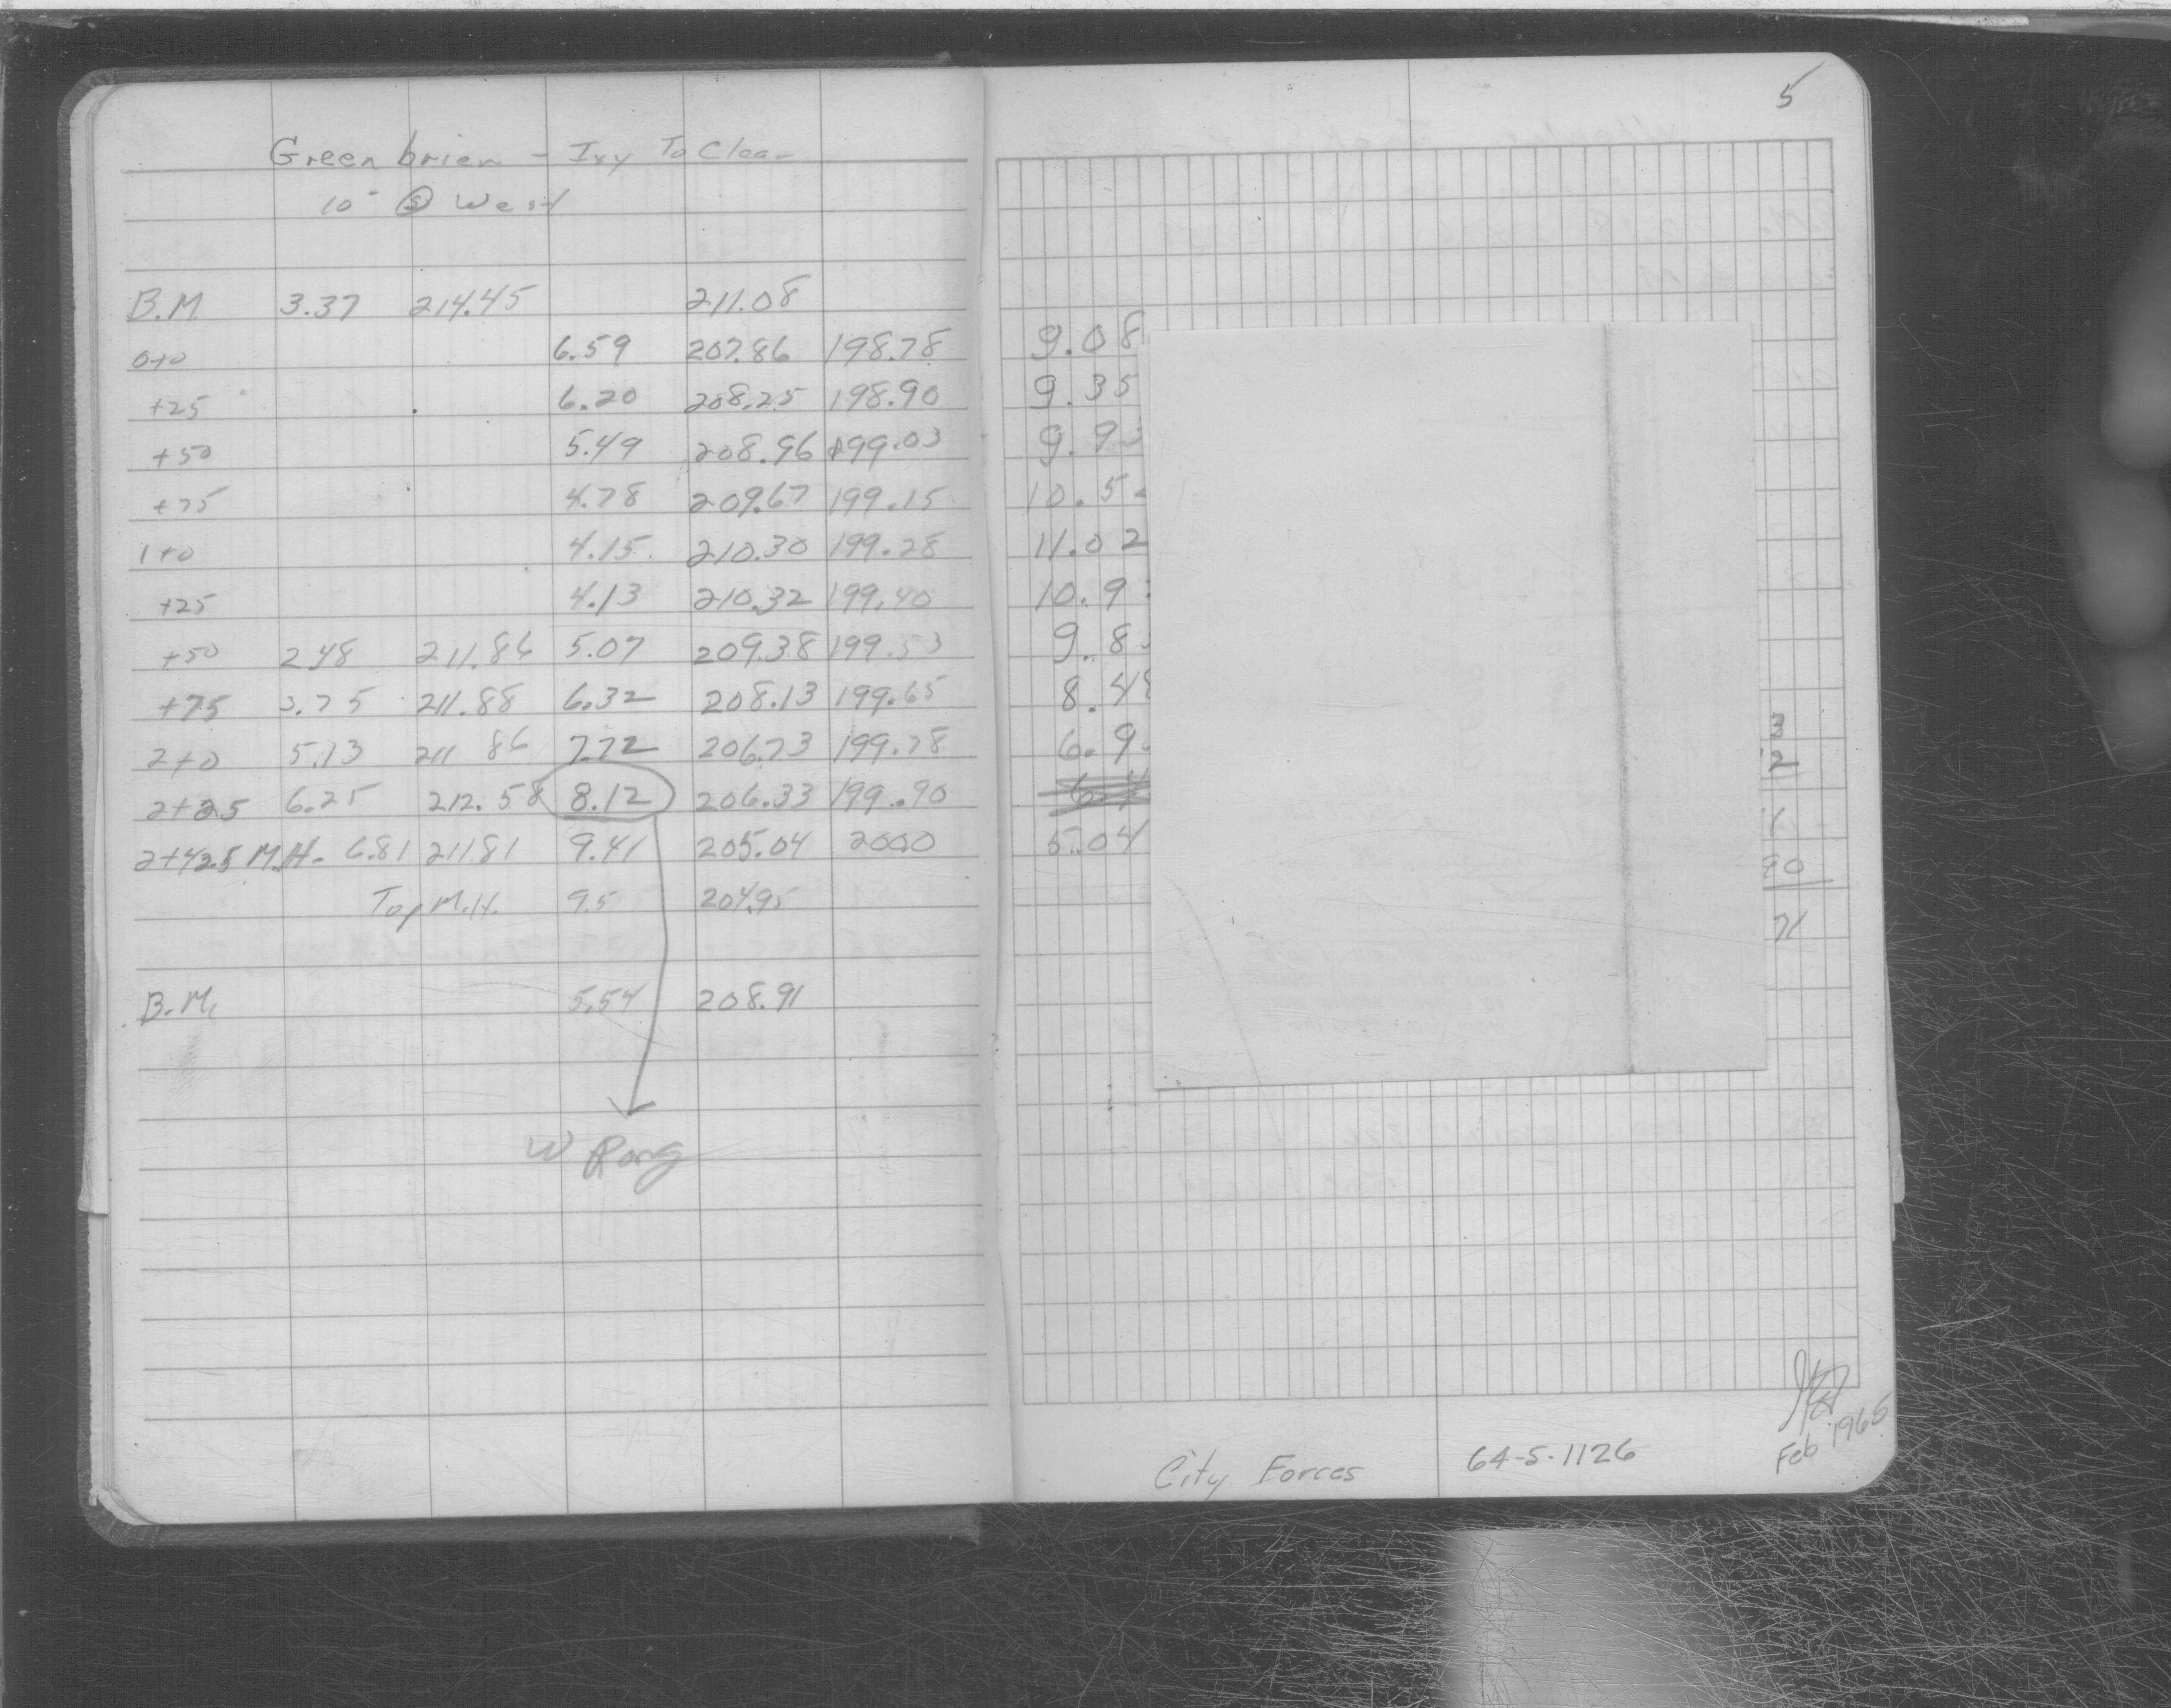 5
Greenbrier - Ivy To Clear
10" @ West
B.M. 3.37 214.45 211.08
0+0 6.59 207.86 198.78 9.08
+25 6.20 208.25 198.90 9.35
+50 5.49 208.96 199.03 9.93
+75 4.78 209.67 199.15 10.5
1+0 4.15 210.30 199.28 11.02
+25 4.13 210.32 199.40 10.9
+50 2.48 211.86 5.07 209.38 199.53 9.8
+75 3.75 211.88 6.32 208.13 199.65 8.48
3
2+0 5.13 211 86 7.72 206.73 199.78 6.9
12
2+25 6.25 212.58 8.12 206.33 199.90
2+42.5 M.H. 6.81 211.81 9.41 205.04 200.0 5.04
90
Top M.H. 9.5 204.95
71
B.M. 5.54 208.91
W Rong
City Forces 64-S-1126
Feb 1965